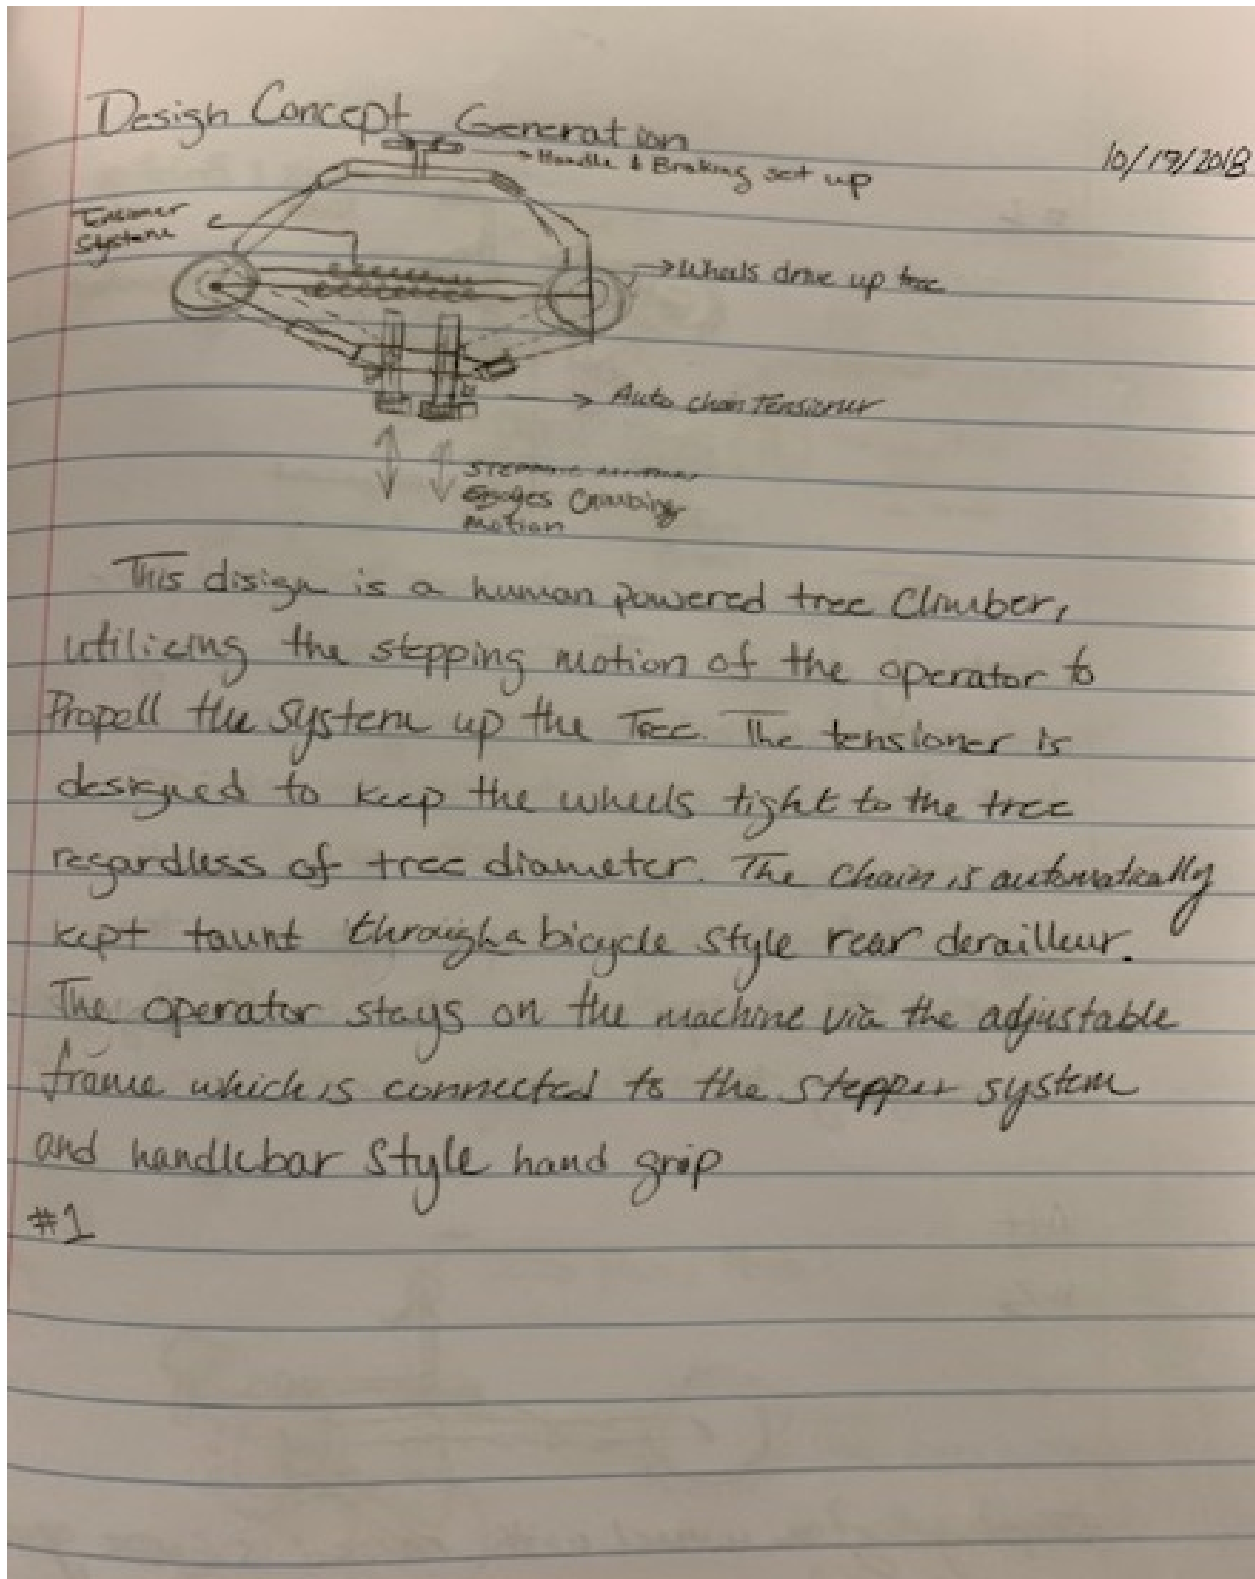 Design Concept Generation
10/17/2018
Handle & Braking set up
Tensioner
System
Wheels drive up tree
Auto chain Tensioner
Engages Climbing
Motion
This disign is a human powered tree Climber,
utilizing the stepping motion of the operator to
Propell the system up the Tree. The tensioner is
designed to keep the wheels tight to the tree
regardless of tree diameter. The Chain is automatically
kept taunt through a bicycle style rear derailleur.
The operator stays on the machine via the adjustable
frame which is connected to the stepper system
and handlebar style hand grip
#1